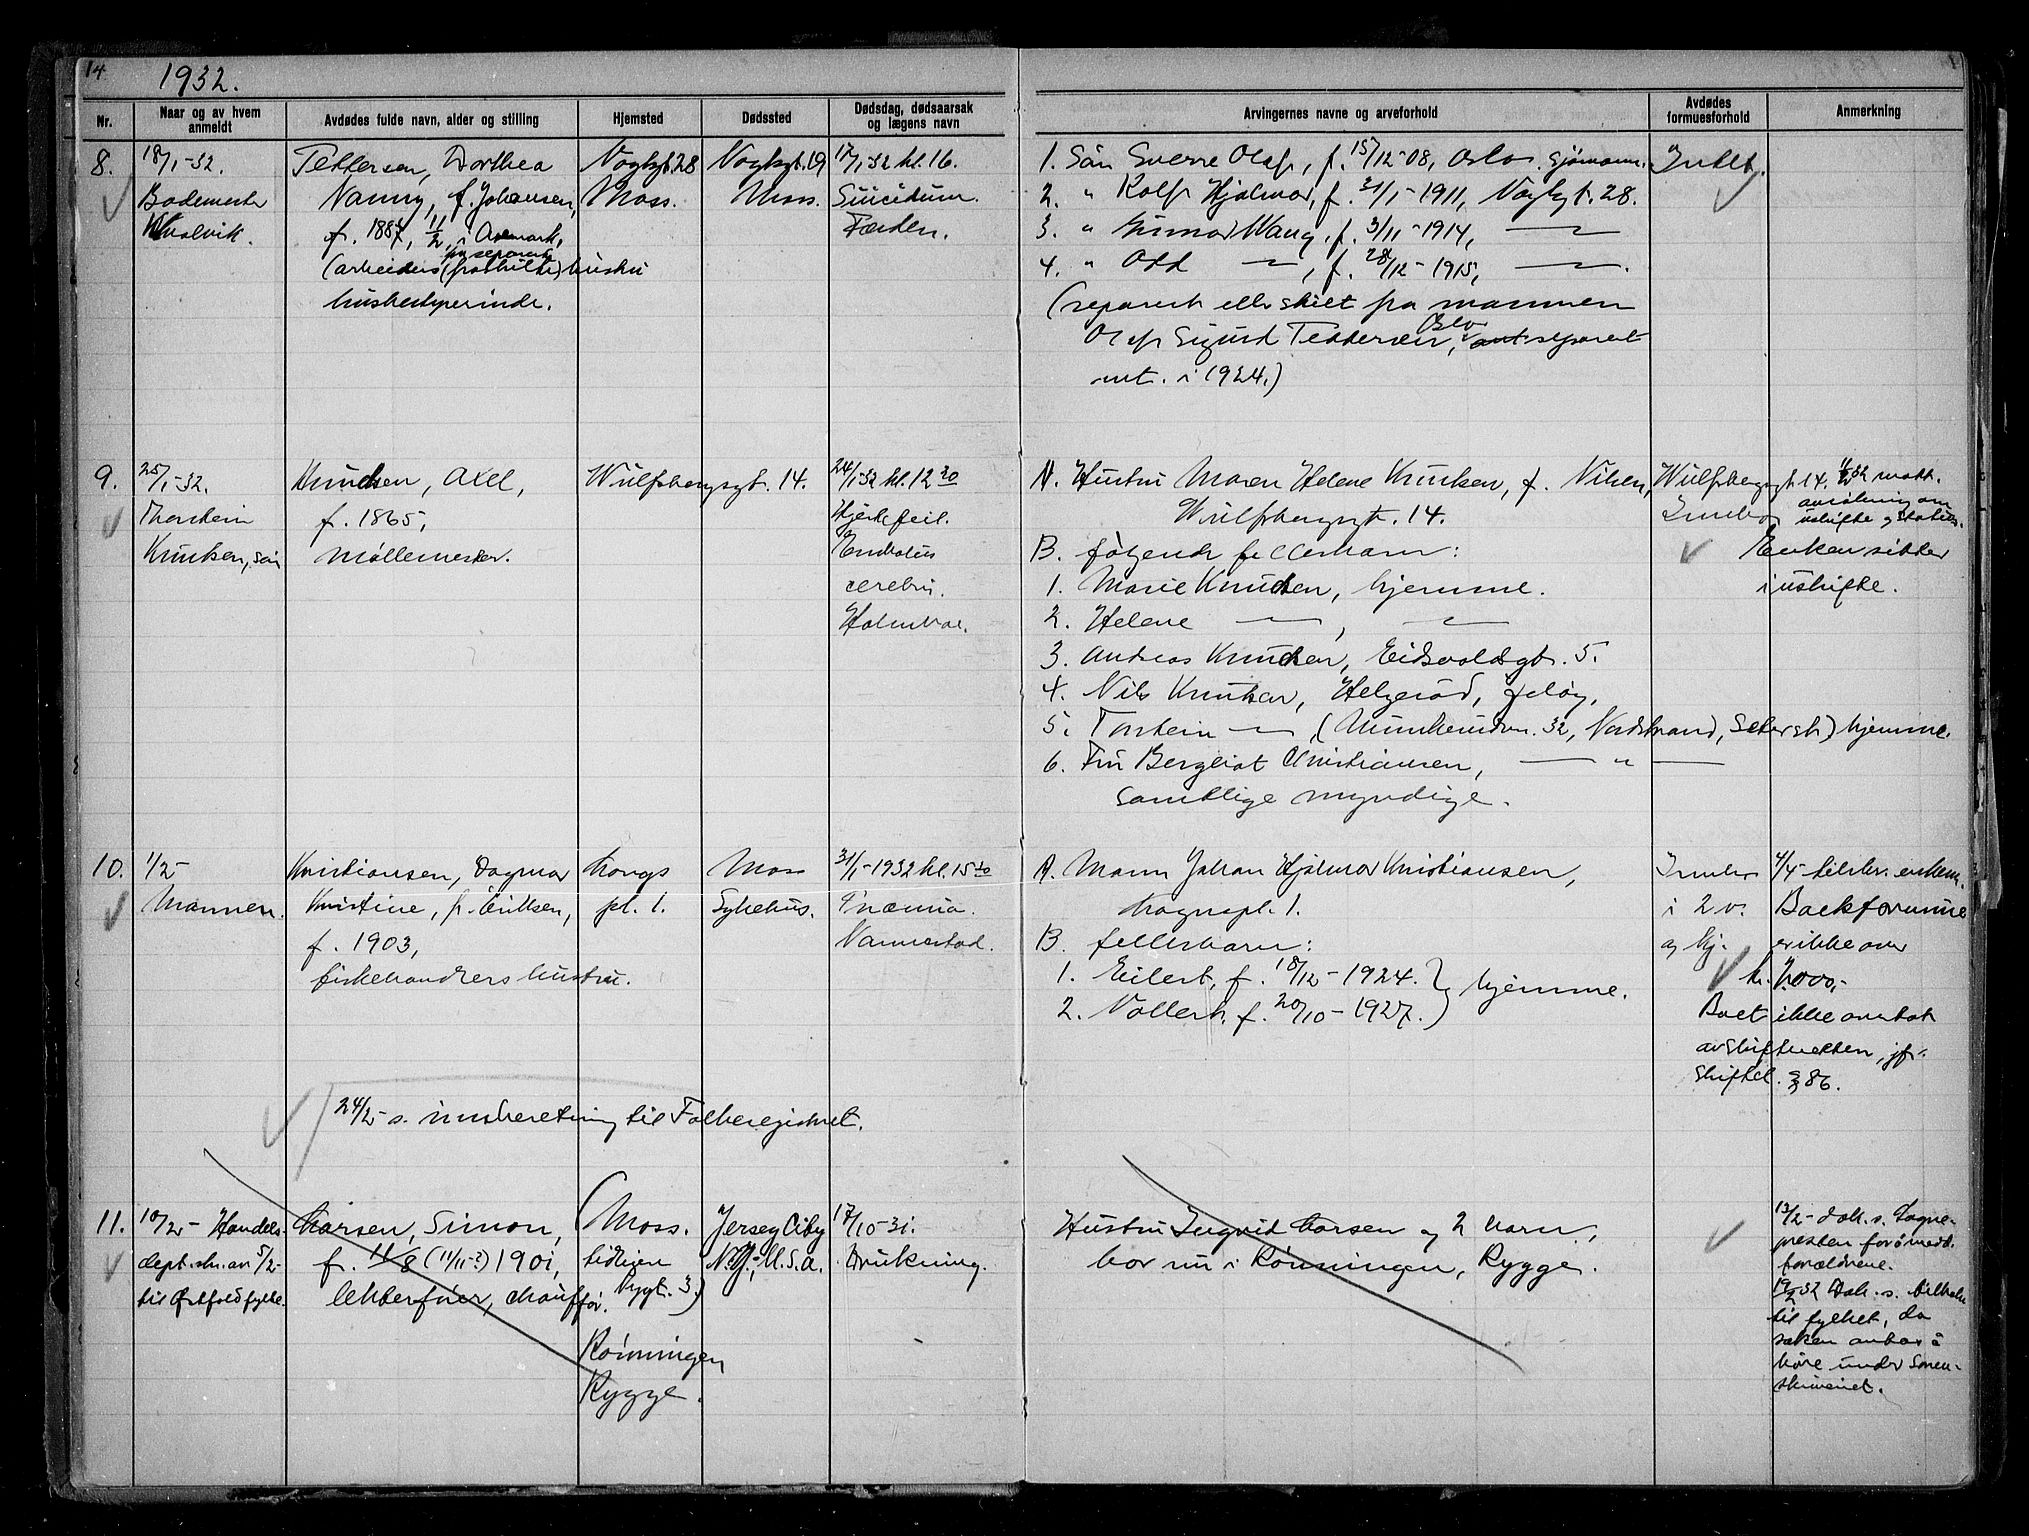 14
1932.
Nr.
Naar og av hvem anmeldt
Avdødes fulde navn, alder og stilling
Hjemsted
Dødssted
Dødsdag, dødsaarsak og lægens navn
Arvingernes navne og arveforhold
Avdødes formuesforhold
Anmerkning
8.
18/1-32.
Bademester
Kvalvik.
Pettersen, Dorthea
Nanny, f. Johansen,
f. 1887, 1/2, i Aremark,
(arbeiders (fraskilte) hustru
husbestyrerinde.
Vogtsgt. 28
Moss.
Vogtsgt. 19
Moss.
17/1-32 kl. 16.
Suicidum.
Færden.
1. Søn Sverre Olaf, f. 15/12-08, Oslo, sjømann.
2. " Rolf Hjalmar, f. 31/1-1911, Vogtsgt. 28.
3. " Gunnar Waug, f. 3/11-1914, —
4. " Odd — , f. 28/12-1915, — .
(separert eller skilt fra mannen
Olaf Sigurd Pettersen, Oslo, ant. separert
nt. i 1924.)
Intet.
9.
25/1-32.
Thorstein
Knutsen, søn
Knudsen, Axel,
f. 1865,
møllemester.
Wulfsbergsgt. 14.
24/1-32 kl. 12 30
Hjertefeil.
Embolus
cerebri.
Holmboe.
A. Hustru Maren Helene Knudsen, f. Nilsen, Wulfsbergsgt. 14.
Wulfsbergsgt. 14.
B. følgende fellesbarn:
1. Marie Knudsen, hjemme.
2. Helene — , —
3. Andreas Knudsen, Eidsvoldsgt. 5.
4. Nils Knudsen, Helgerød, Jeløy,
5. Torstein — (Munkerudvn. 32, Nordstrand,Seterst.) hjemme.
6. Fru Bergliot Christiansen, — " —
samtlige myndige.
Innbo
1/2 32 mott.
ansøkning om
uskifte
Enken sitter
i uskifte.
10.
1/2-
Mannen.
Kristiansen, Dagmar
Kristine, f. Eriksen,
f. 1903,
fiskehandlers hustru.
Kongs
pl. 1.
Moss
Sykehus.
31/1-1932 kl. 15 40
Pnæmia.
Vannestad.
A. Mann Johan Hjalmar Kristiansen,
Kongspl. 1.
B. fellesbarn:
1. Eilert, f. 18/12-1924. } hjemme.
2. Vollert, f. 20/10-1927. }
Innbo
i 2 v.
og kj.
4/4- tilskr. enkem.
Boets formue
er ikke over
kr. 2000,-
Boet ikke overtat
av skifteretten, jf.
skiftel. § 86.
24/2- s. innberetning til Folkeregistret.
11.
10/2- Handels-
dept. skr. av 5/2-
til Østfold fylke.
Larsen, Simon,
f. 11/8 (11/11-?) 1901,
lekterfører, chauffør.
(Moss.
tidligere
Rygt. 3.)
Rønningen
Rygge.
Jersey City
N.J., U.S.A.
17/10-31.
Drukning.
Hustru Ingrid Larsen og 2 barn,
bor nu i Rønningen, Rygge.
13/2- dok. s. Sogne-
presten for å medd.
forældrene.
19/2-32 Dok. s. tilbake
til fylket, da
saken antas å
høre under Soren-
skriveriet.